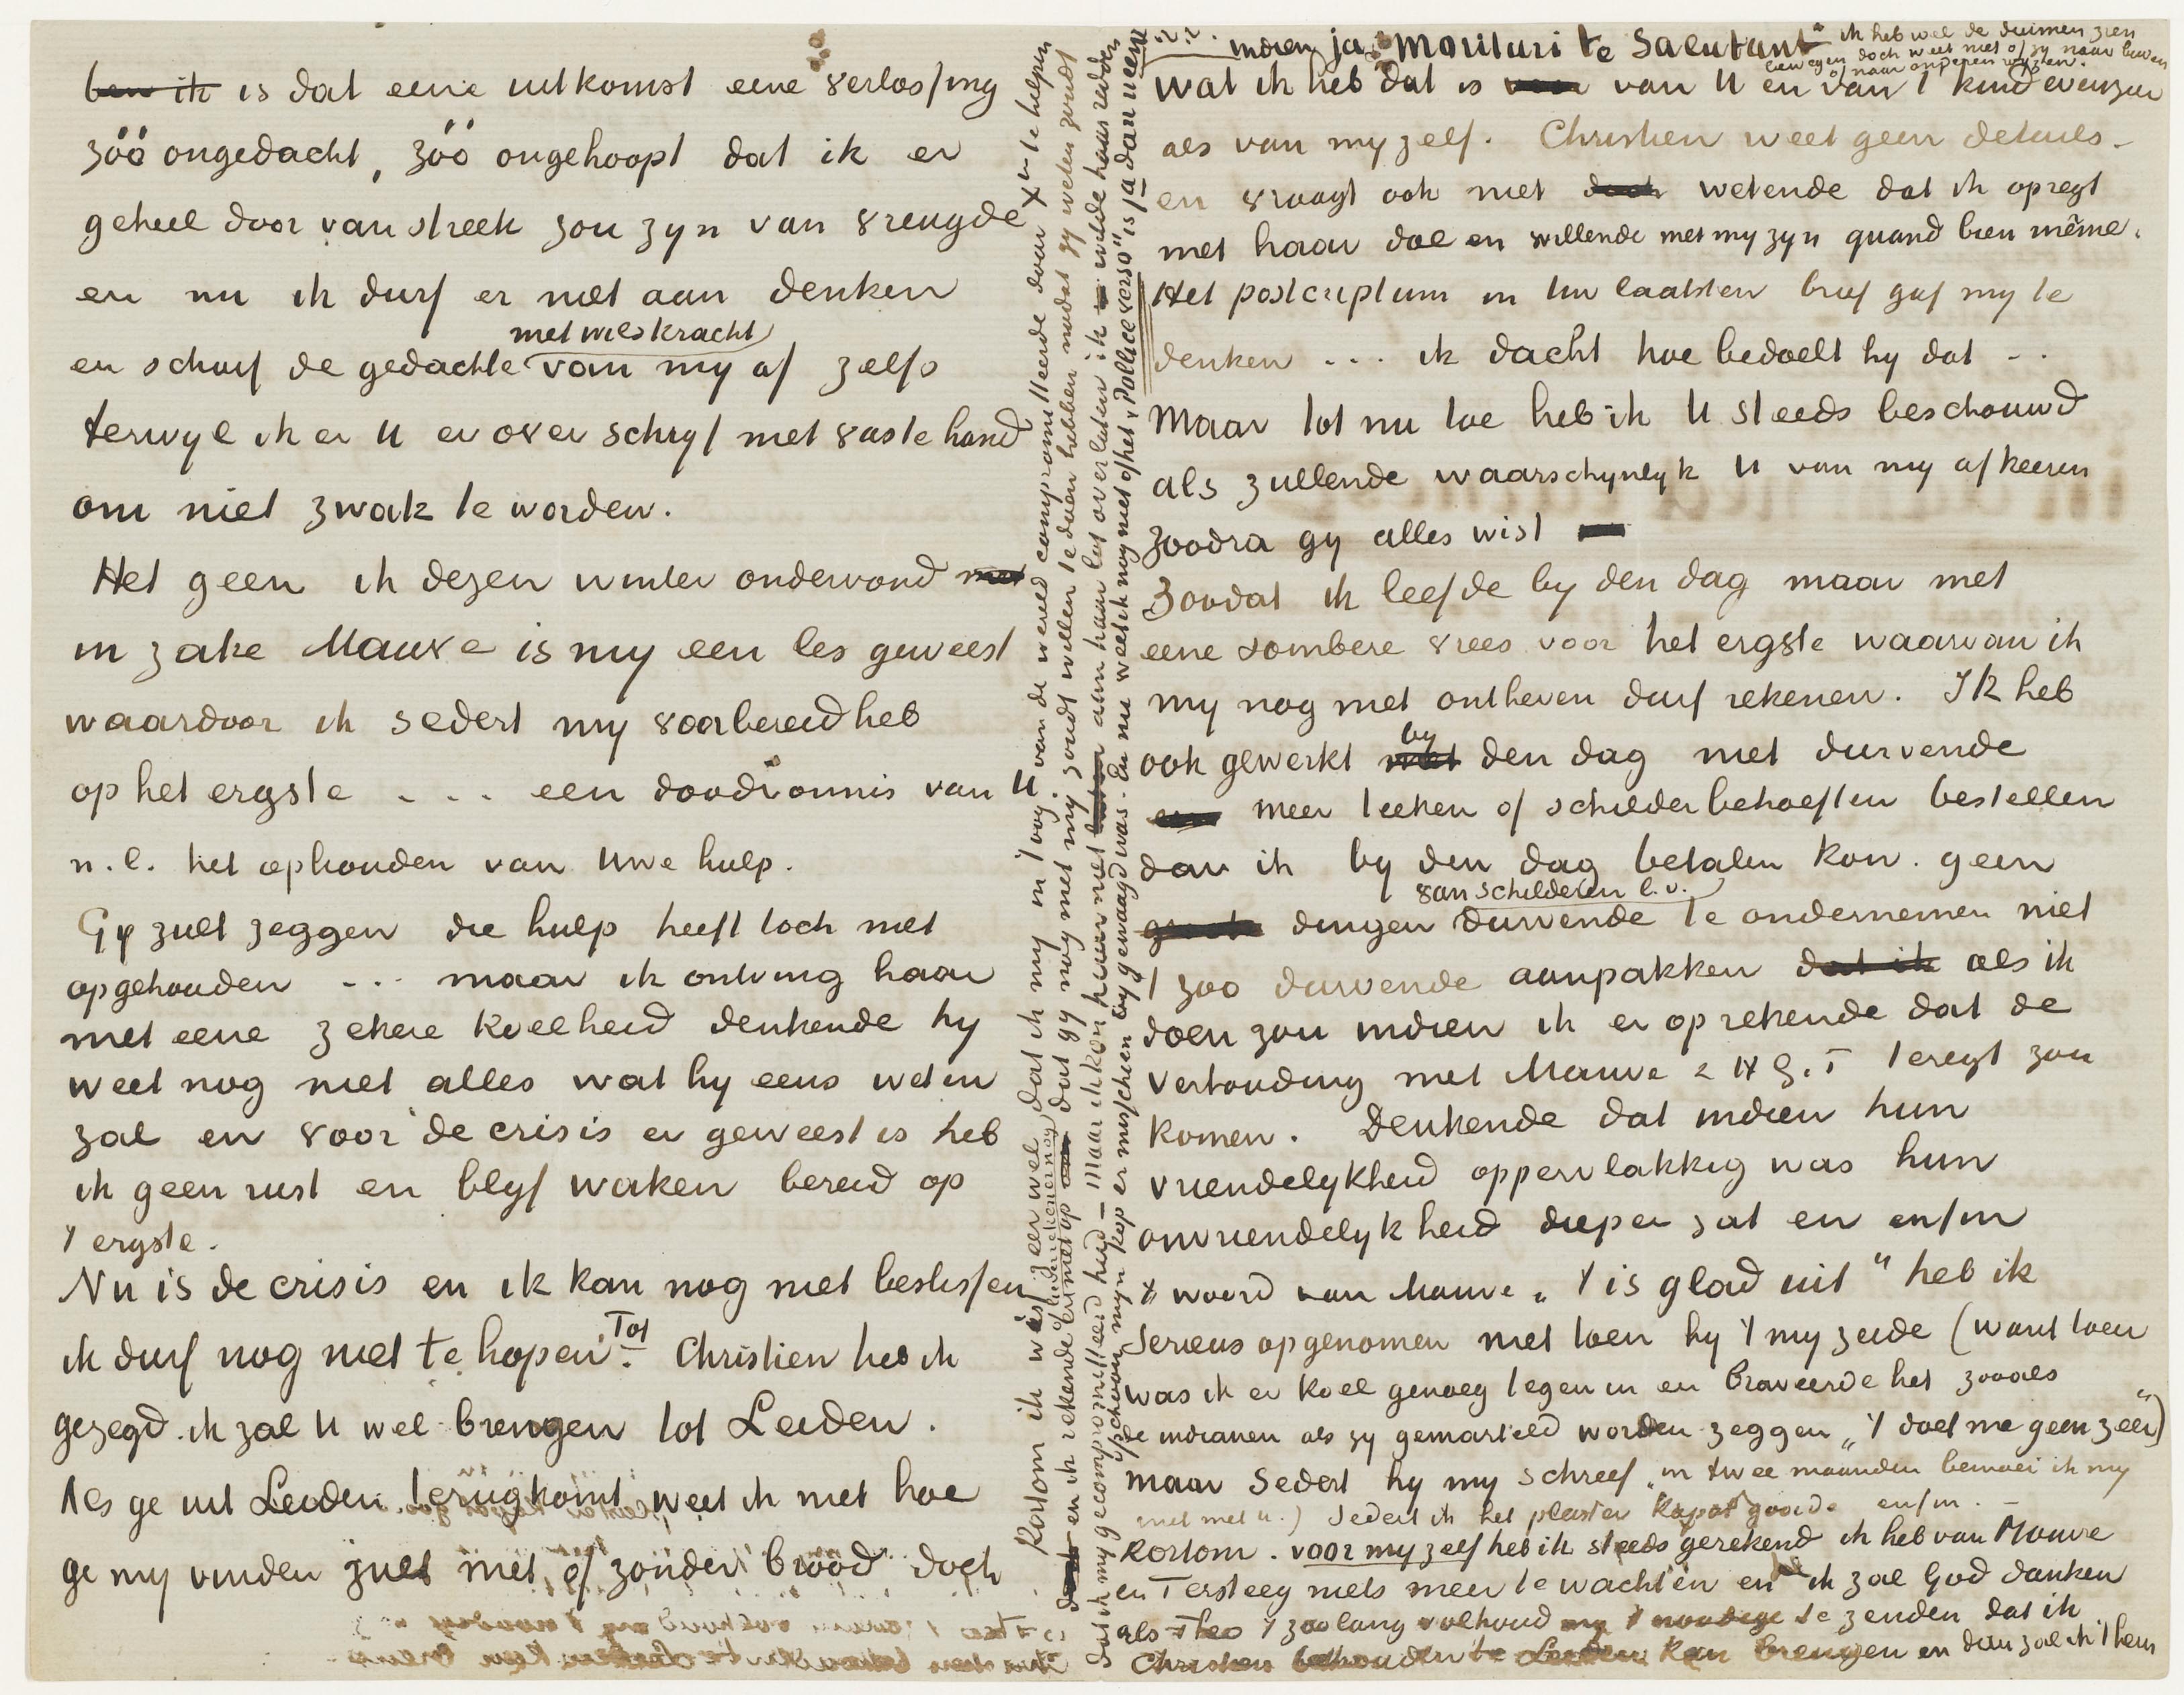 ben ik is dat eene uitkomst eene verlossing
zóó ongedacht, zóó ongehoopt dat ik er
geheel door van streek zou zyn van vreugde
en nu ik durf er niet aan denken
met wilskracht
en schuif de gedachte van my af zelfs
terwyl ik er U er over schryf met vaste hand
om niet zwak te worden.
Het geen ik dezen winter ondervond
in zake Mauve is my een les geweest
waardoor ik sedert my voorbereid heb
op het ergste . . . een doodvonnis van U.
n.l. het ophouden van Uwe hulp.
Gy zult zeggen die hulp heeft toch niet
opgehouden . . . maar ik ontving haar
met eene zekere koelheid denkende hy
weet nog niet alles wat hy eens weten
zal en voor de crisis er geweest is heb
ik geen rust en blyf waken bereid op
't ergste.
Nu is de crisis en ik kan nog niet beslissen
ik durf nog niet te hopen. Tot Christien heb ik
gezegd ik zal U wel brengen tot Leiden.
Als ge uit Leiden terugkomt weet ik niet hoe
ge my vinden zult met of zonder brood doch
wat ik heb dat is van U en van 't kind evenzeer
als van my zelf. Christien weet geen details –
en vraagt ook niet wetende dat ik opregt
met haar doe en willende met my zyn quand bien même.
Het postcriptum in Uw laatsten brief gaf my te
denken . . . ik dacht hoe bedoelt hy dat . .
Maar tot nu toe heb ik U steeds beschouwd
als zullende waarschynlyk U van my afkeeren
zoodra gy alles wist
Zoodat ik leefde by den dag maar met
eene sombere vrees voor het ergste waarvan ik
my nog niet ontheven durf rekenen. Ik heb
ook gewerkt by den dag niet durvende
meer teeken of schilderbehoeften bestellen
dan ik by den dag betalen kon. geen
van schilderen b.v.
dingen durvende te ondernemen niet
't zoo durvende aanpakken dat ik als ik
doen zou indien ik er op rekende dat de
verhouding met Mauve & H.G.T. teregt zou
komen. Denkende dat indien hun
vriendelykheid oppervlakkig was hun
onvriendelykheid dieper zat en enfin
't woord van Mauve „'t is glad uit" heb ik
serieus opgenomen niet toen hy 't my zeide (want toen
was ik er koel genoeg tegen in en braveerde het zooals
de indianen als zy gemarteld worden zeggen „'t doet me geen zeer")
maar sedert hy my schreef „in twee maanden bemoei ik my
niet met u.) Sedert ik het pleister kapot gooide enfin. –
Kortom. voor my zelf heb ik steeds gerekend ik heb van Mauve
en Tersteeg niets meer te wachten en ik zal God danken
als Theo 't zoolang volhoud my 't noodige te zenden dat ik
Christien behouden te Leiden kan brengen en dan zal ik 't hem
Kortom ik wist zeer wel dat ik my in 't oog van de wereld compromitteerde door X te helpen
en ik rekende er niet op dat gy nog met my zoudt willen te doen hebben nadat gy weten zoudt
dat ik my gecompromitteerd had – maar ik kon haar niet aan haar lot overlaten ik wilde haar redden
ofschoon myn kop er misschien by gewaagd was. En nu weet ik nog niet of het „Pollice verso" is ja dan neen
indien ja „Morituri te Salutant"
ik heb wel de duimen zien
bewegen doch weet niet of zy naar boven
of naar onderen wyzen.